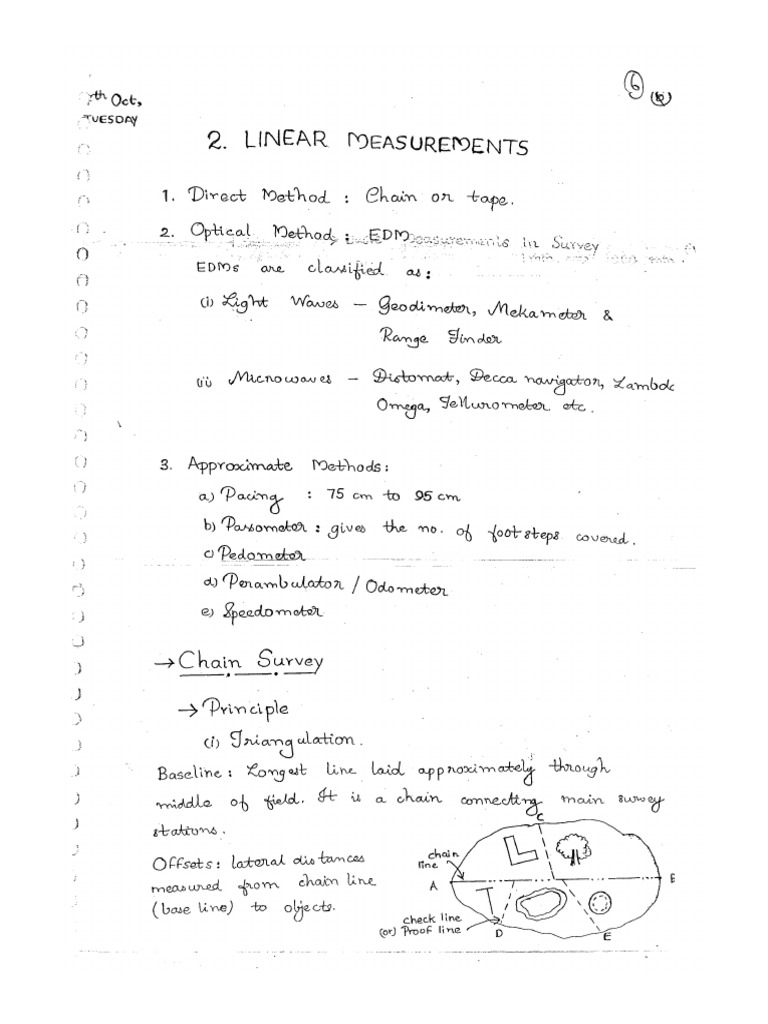 6
(b)
7th Oct,
TUESDAY
2. LINEAR MEASUREMENTS
1. Direct Method : Chain or tape.
2. Optical Method : EDM
Measurements in Survey
EDMs are classified as :
(i) Light Waves – Geodimeter, Mekameter &
Range Finder
(ii) Microwaves – Distomat, Decca navigator, Lambda
Omega, Tellurometer etc.
3. Approximate Methods :
a) Pacing : 75 cm to 95 cm
b) Passometer : gives the no. of footsteps covered.
c) Pedometer
d) Perambulator / Odometer
e) Speedometer
→ Chain Survey
→ Principle
(i) Triangulation.
Baseline : Longest line laid approximately through
middle of field. It is a chain connecting main survey
stations.
Offsets : lateral distances
measured from chain line
(base line) to objects.
C
chain
line
A
B
check line
(or) Proof line
D
E